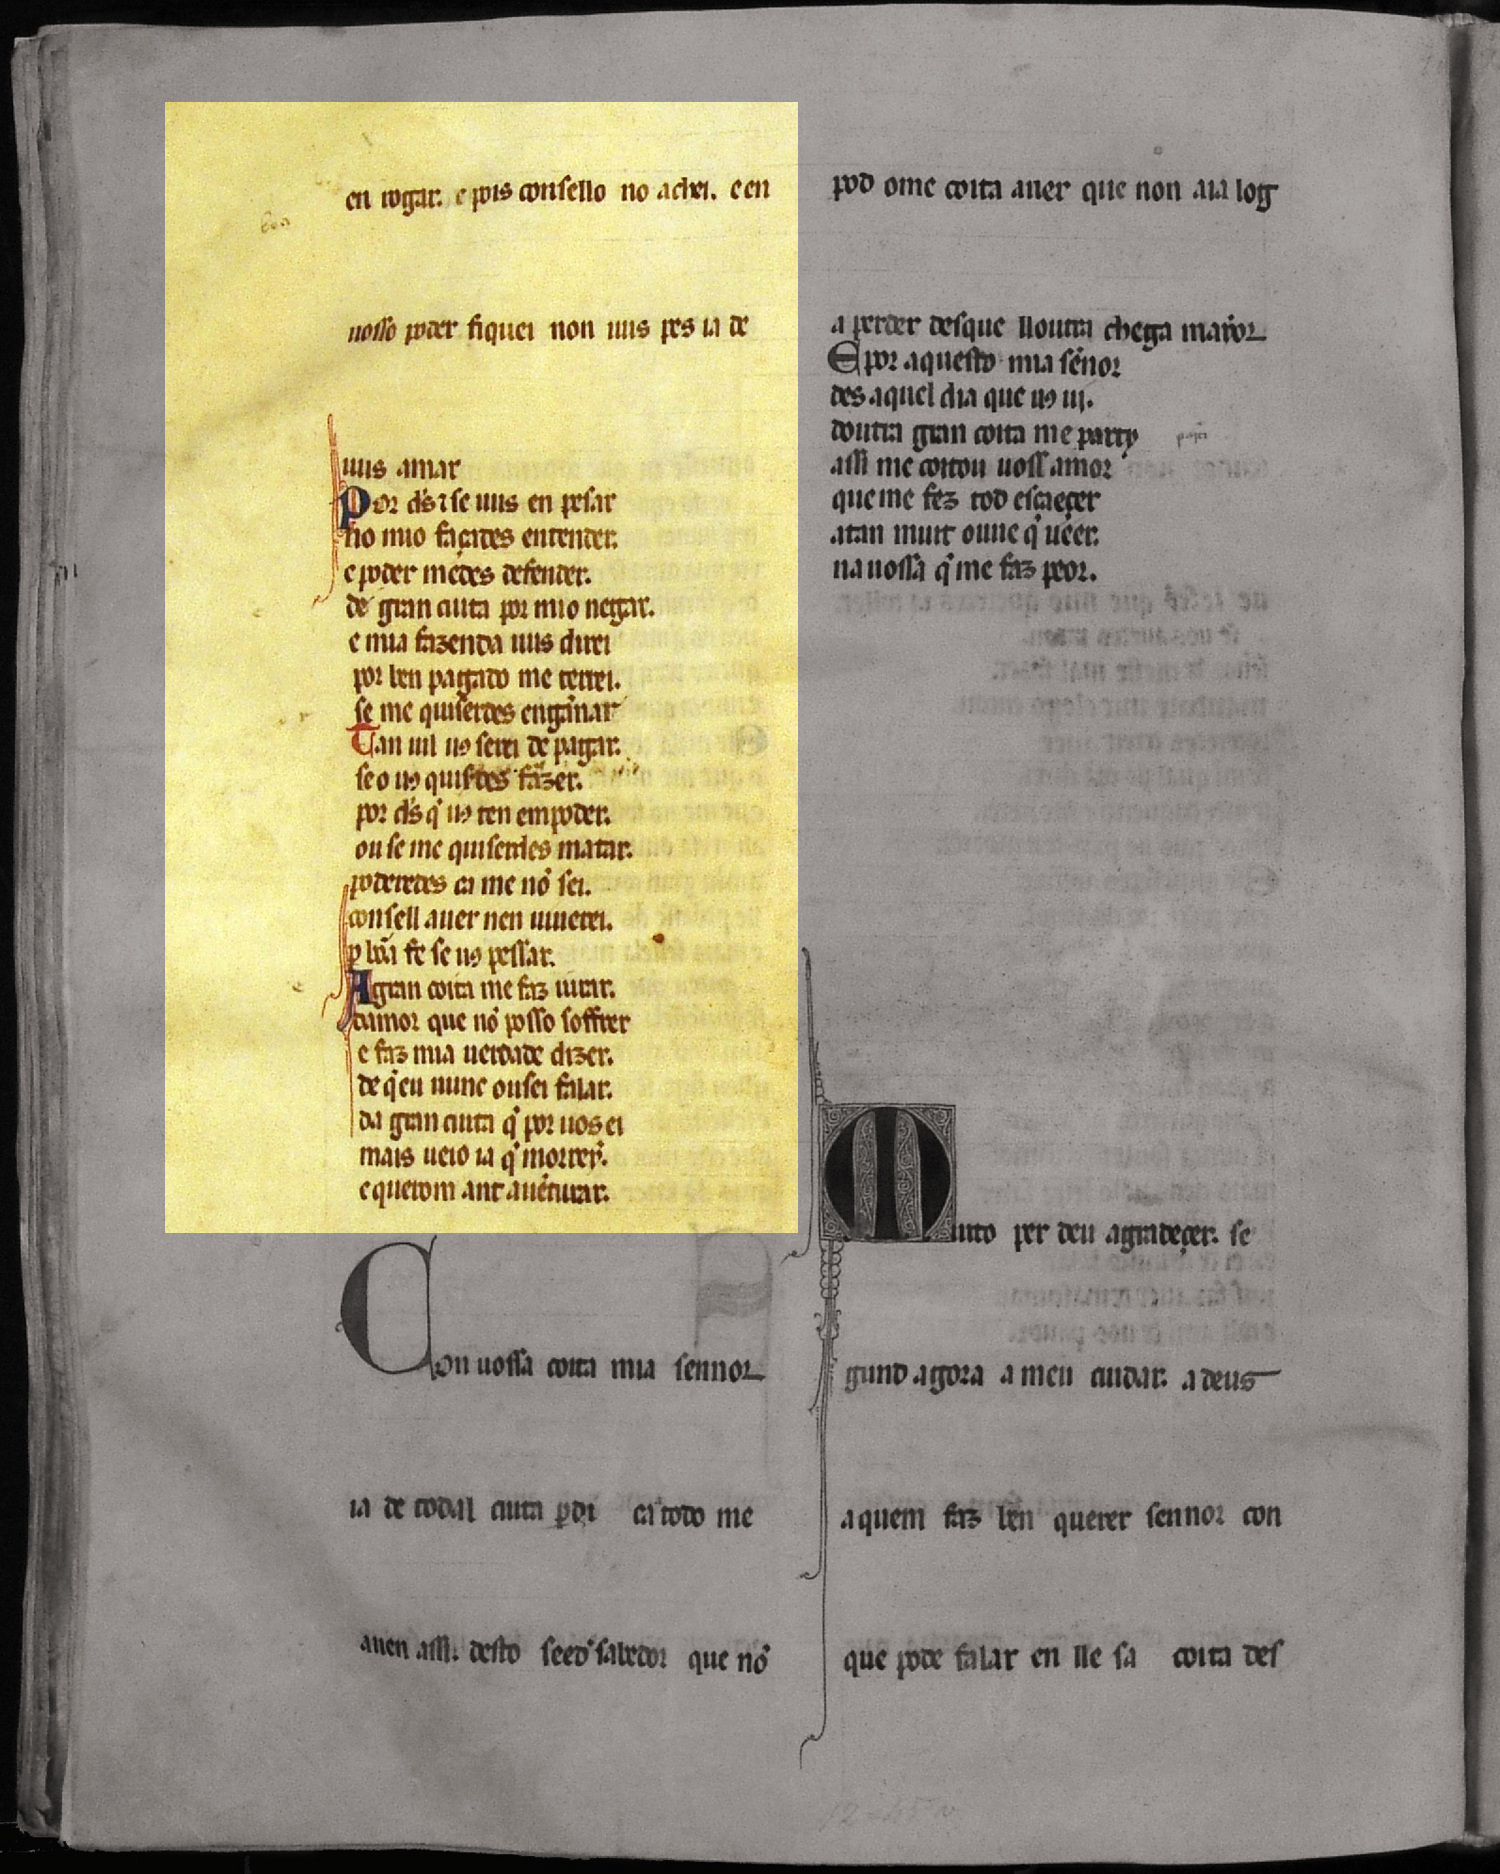 en rogar. e pois consello no achei. e en
uosso poder fiquei non uus pes ia de
uus amar
Por ds̄ ⁊ se uus en pesar
no mio façades entender.
e poder medes defender.
de gran cuita por mio negar.
e mia fazenda uus direi
por ben pagado me terrei.
se me quiserdes engānar
Tan uil uꝯ serei de pagar.
se o uꝯ quisꝭdes fazer.
por ds̄ q̄ uꝯ ten en poder.
ou se me quiserdes matar.
poderedes ca me nō sei.
consell auer nen uiuerei.
ꝑ bōa fe se uꝯ pessar.
A gran coita me faz iurar.
damor que nō posso soffrer
e faz mia uerdade dizer.
de q̄ eu nunc ousei falar.
da gran cuita q̄ por uos ei
mais ueio ia q̄ morrerꝩ.
e querom ant auēturar.
Con uossa coita mia sennor
ia de todal cuita ꝑdi ca todo me
auen assi. desto seed sabedor que nō
pod ome coita auer que non aia log
a perder desque lloutra chega mayor
E por aquesto mia sēnor
des aquel dia que uꝯ ui.
doutra gran coita me party
assi me coitou uoss amor
que me fez tod escaeçer
atan muit oune q̄ ueer.
na uossa q̄ me faz peor.
Muito per deu agradeçer. se
gund agora a meu cuidar. a deus
a quem faz ben querer sennor con
que pode falar en lle sa coita des